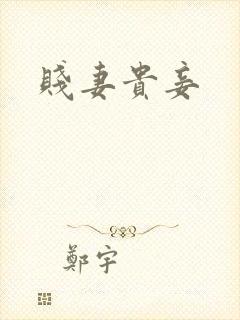 賤妻貴妾
鄭宇